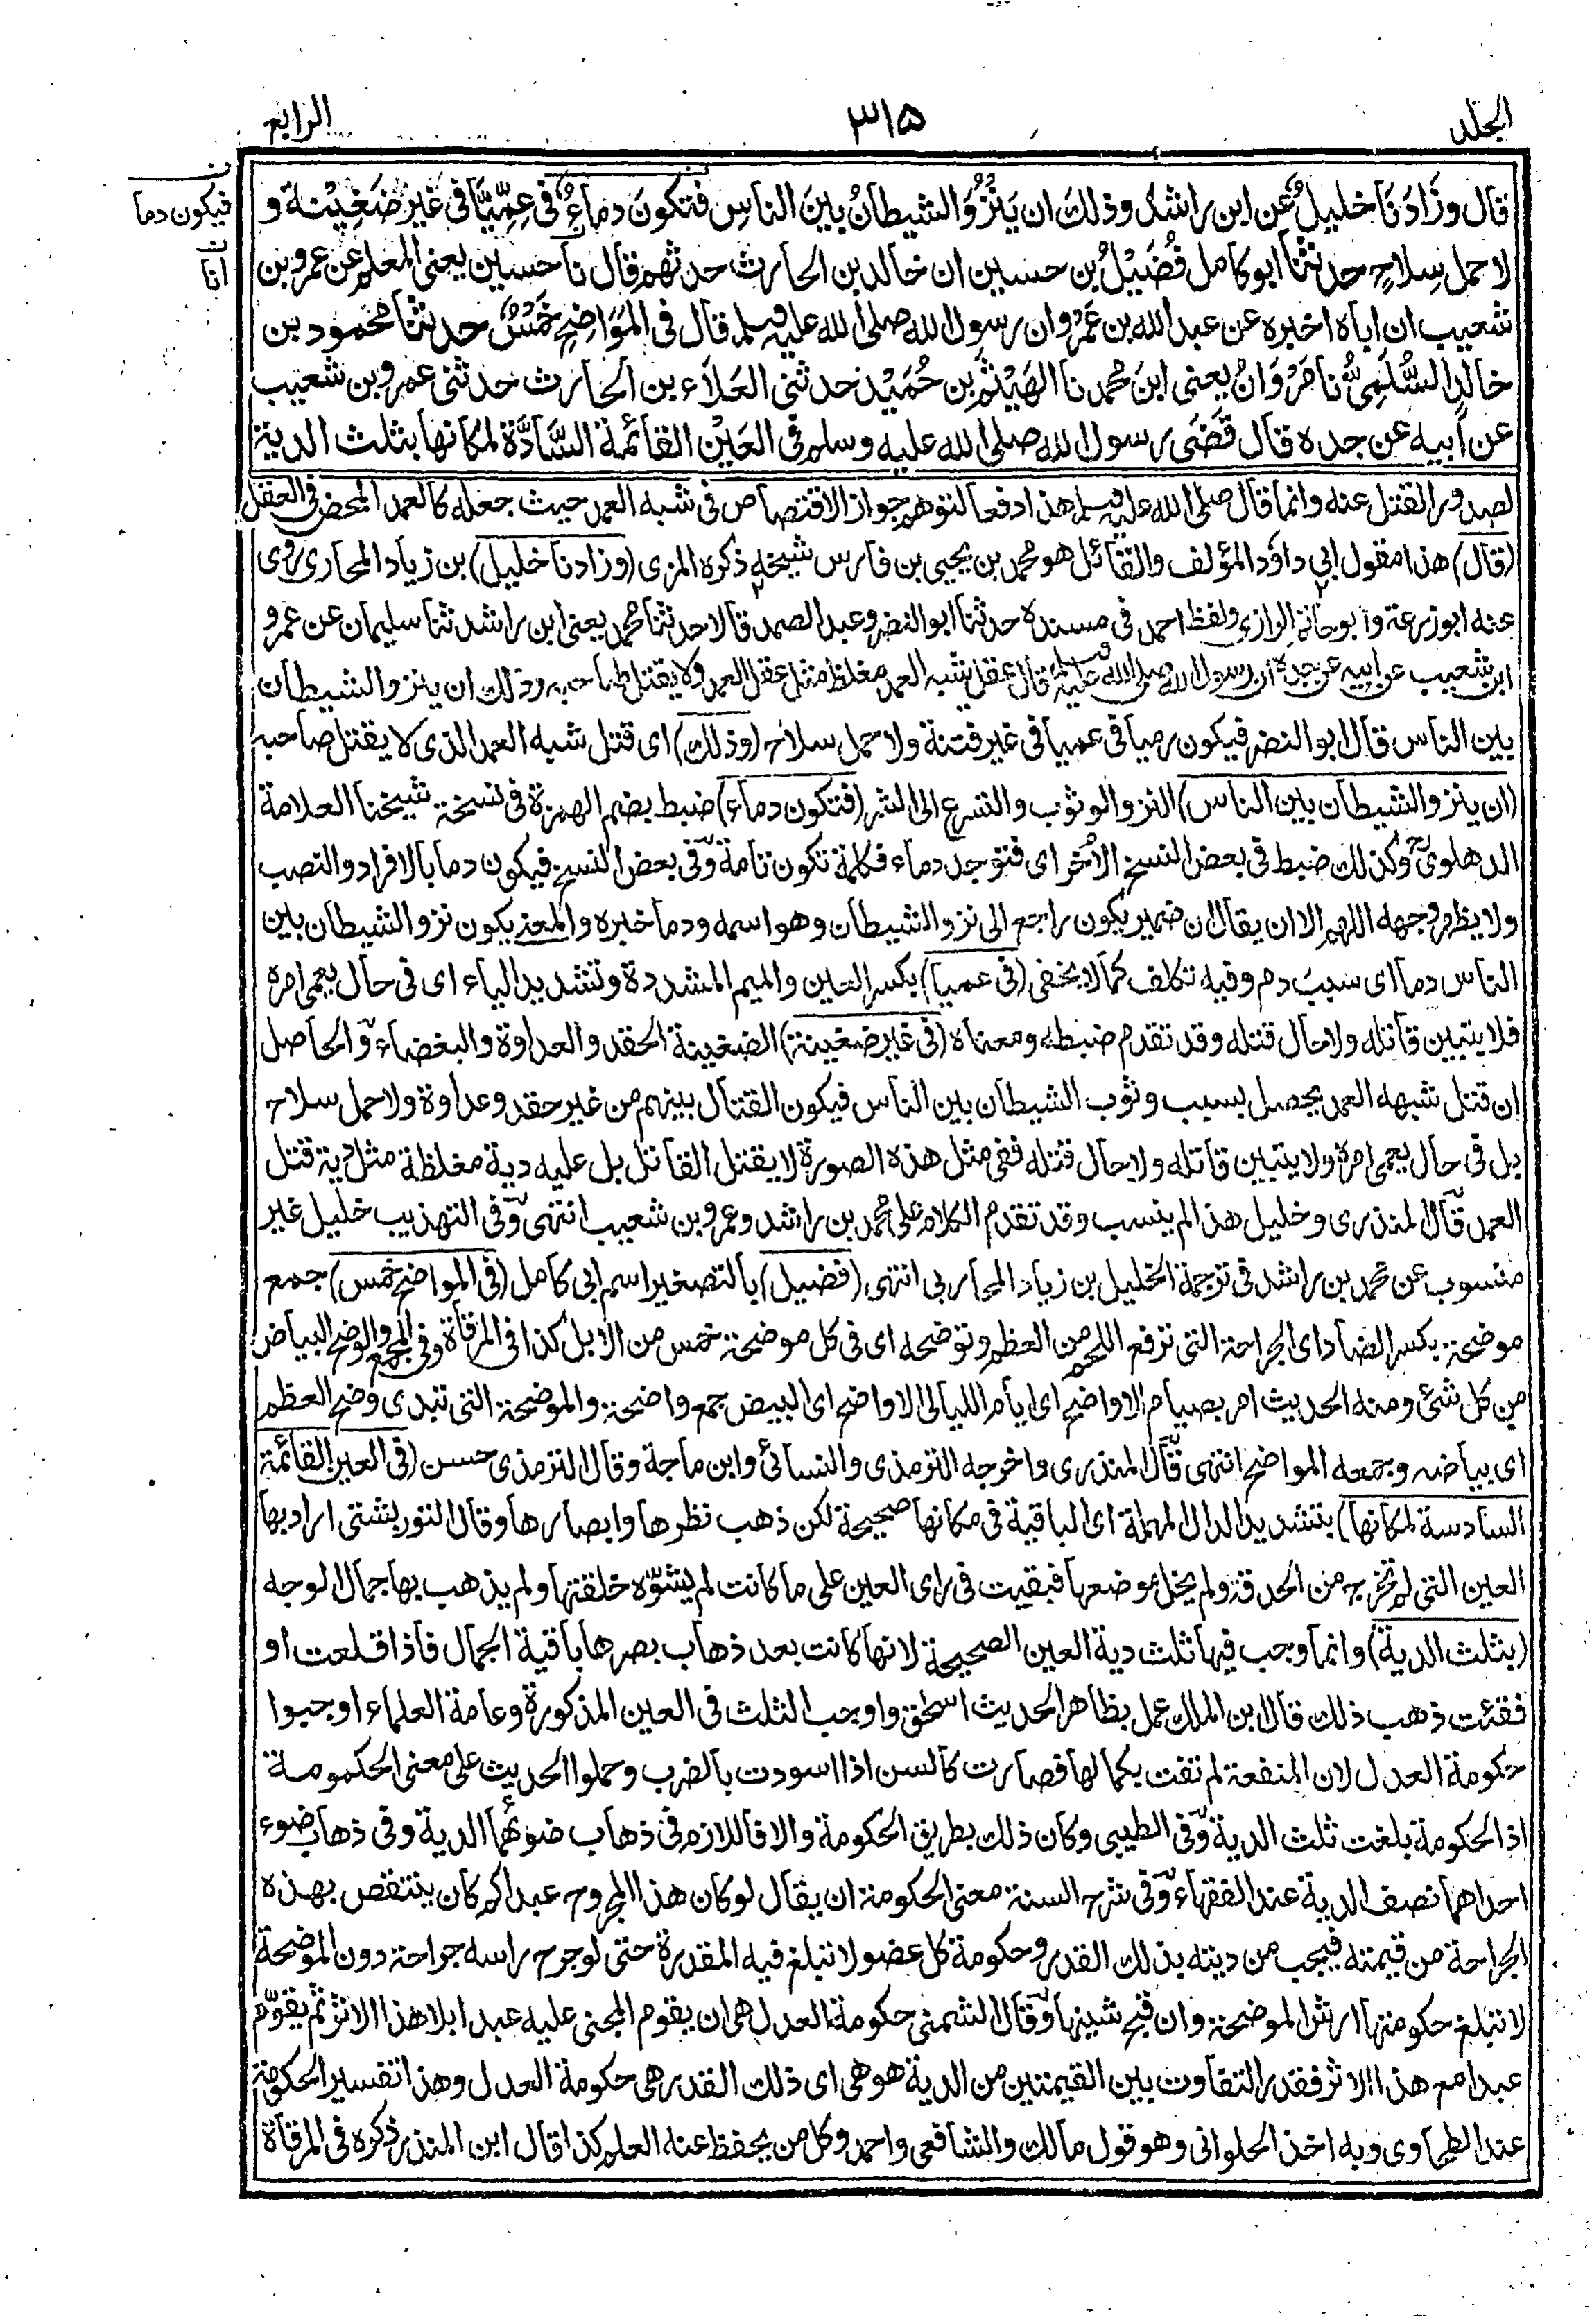 الجلد
٣١٥
الرابع
قال وزَادَنَا خليلٌ عن ابن راشد وذلك ان يَنْزُوَ الشيطانُ بين الناسِ فتكونَ دماءٌ فى عِمِّيَّا فى غَيْرِ ضَغِيْنة و
فيكون دما
لا حمل سِلاحٍ حدثنا ابو كامل فُضَيْلُ بن حسين ان خالد بن الحارث حدثهم قال نا حسين يعنى المعلم عن عمرو بن
انا
شعيب ان اباه اخبره عن عبد الله بن عَمْرٍو ان رسول الله صلى الله عليه وسلم قال فى المَوَاضِحِ خَمْسٌ حدثنا محمود بن
خالدٍ السُّلَمِىُّ نا مَرْوَانُ يعنى ابنَ محمد نا الهَيْثَمُ بن حُمَيْد حدثنى العَلَاء بن الحارث حدثنى عمرو بن شعيب
عن أبيه عن جده قال قَضَى رسول الله صلى الله عليه وسلم فى العَيْنِ القائمة السَّادَّة لمكانها بثلث الدية
لصدور القتل عنه وانما قال صلى الله عليه وسلم هذا دفعا لتوهم جواز الاقتصاص فى شبه العمد حيث جعله كالعمد المحض فى العقل
(قال) هذا مقول ابى داؤد المؤلف والقائل هو محمد بن يحيى بن فارس شيخه ذكره المزى (وزادنا خليل) بن زياد المحاربى روى
عنه ابوزرعة وابو حاتم الرازى ولفظ احمد فى مسنده حدثنا ابو النضر وعبد الصمد قالا حدثنا محمد يعنى ابن راشد ثنا سليمان عن عمرو
ابن شعيب عن ابيه عن جده ان رسول الله صلى الله عليه وسلم قال عقل شبه العمد مغلظ مثل عقل العمد ولا يقتل صاحبه وذلك ان ينزو الشيطان
بين الناس قال ابو النضر فيكون رميا فى عميا فى غير فتنة ولا حمل سلاح (وذلك) اى قتل شبه العمد الذى لا يقتل صاحبه
(ان ينزو الشيطان بين الناس) النزو الوثوب والتسرع الى الشر (فتكون دماء) ضبط بضم الهمزة فى نسخة شيخنا العلامة
الدهلوى وكذلك ضبط فى بعض النسخ الأخر اى فتوجد دماء فكلمة تكون تامة وفى بعض النسخ فيكون دما بالافراد والنصب
ولا يظهر وجهه اللهم الا ان يقال ان ضمير يكون راجع الى نزو الشيطان وهو اسمه ودما خبره والمعنى يكون نزو الشيطان بين
الناس دما اى سبب دم وفيه تكلف كما لا يخفى (فى عميا) بكسر العين والميم المشددة وتشديد الياء اى فى حال يعمى امره
فلا يتبين قاتله ولا حال قتله وقد تقدم ضبطه ومعناه (فى غير ضغينة) الضغينة الحقد والعداوة والبغضاء والحاصل
ان قتل شبهه العمد يحصل بسبب وثوب الشيطان بين الناس فيكون القتال بينهم من غير حقد وعداوة ولا حمل سلاح
بل فى حال يعمى امره ولا يتبين قاتله ولا حال قتله ففى مثل هذه الصورة لا يقتل القاتل بل عليه دية مغلظة مثل دية قتل
العمد قال المنذرى وخليل هذا لم ينسب وقد تقدم الكلام على محمد بن راشد وعمرو بن شعيب انتهى وفى التهذيب خليل غير
منسوب عن محمد بن راشد فى ترجمة الخليل بن زياد المحاربى انتهى (فضيل) بالتصغير اسم ابى كامل (فى المواضح خمس) جمع
موضحة بكسر الضاد اى الجراحة التى ترفع اللحم من العظم وتوضحه اى فى كل موضحة خمس من الابل كذا فى المرقاة وفى المجمع والوضح البياض
من كل شئ ومنه الحديث امر بصيام الاواضح اى ايام الليالى الاواضح اى البيض جمع واضحة والموضحة التى تبدى وضح العظم
اى بياضه وجمعه المواضح انتهى قال المنذرى واخرجه الترمذى والنسائى وابن ماجة وقال الترمذى حسن (فى العين القائمة
السادسة لمكانها) بتشديد الدال المهملة اى الباقية فى مكانها صحيحة لكن ذهب نظرها وابصارها وقال التوربشتى اراد بها
العين التى لم تخرج من الحدقة ولم يخل موضعها فبقيت فى راى العين على ما كانت لم يشوّه خلقتها ولم يذهب بها جمال الوجه
(بثلث الدية) وانما وجب فيها ثلث دية العين الصحيحة لانها كانت بعد ذهاب بصرها باقية الجمال فاذا قلعت او
فقئت ذهب ذلك قال ابن الملك عمل بظاهر الحديث اسحٰق واوجب الثلث فى العين المذكورة وعامة العلماء اوجبوا
حكومة العدل لان المنفعة لم تفت بكمالها فصارت كالسن اذا اسودت بالضرب وحملوا الحديث على معنى الحكومة
اذ الحكومة بلغت ثلث الدية وفى الطيبى وكان ذلك بطريق الحكومة والا فاللازم فى ذهاب ضوئهما الدية وفى ذهاب ضوء
احداهما نصف الدية عند الفقهاء وفى شرح السنة معنى الحكومة ان يقال لو كان هذا المجروح عبدا كم كان ينتقص بهذه
الجراحة من قيمته فيجب من ديته بذلك القدر وحكومة كل عضو لا تبلغ فيه المقدرة حتى لو جرح راسه جراحة دون الموضحة
لا تبلغ حكومتها ارش الموضحة وان قبح شينها وقال الشمنى حكومة العدل هى ان يقوم المجنى عليه عبدا بلا هذا الاثر ثم يقوّم
عبدا مع هذا الاثر فقدر التفاوت بين القيمتين من الدية هو هى اى ذلك القدر هى حكومة العدل وهذا تفسير الحكومة
عند الطحاوى وبه اخذ الحلوانى وهو قول مالك والشافعى واحمد وكل من يحفظ عنه العلم كذا قال ابن المنذر ذكره فى المرقاة